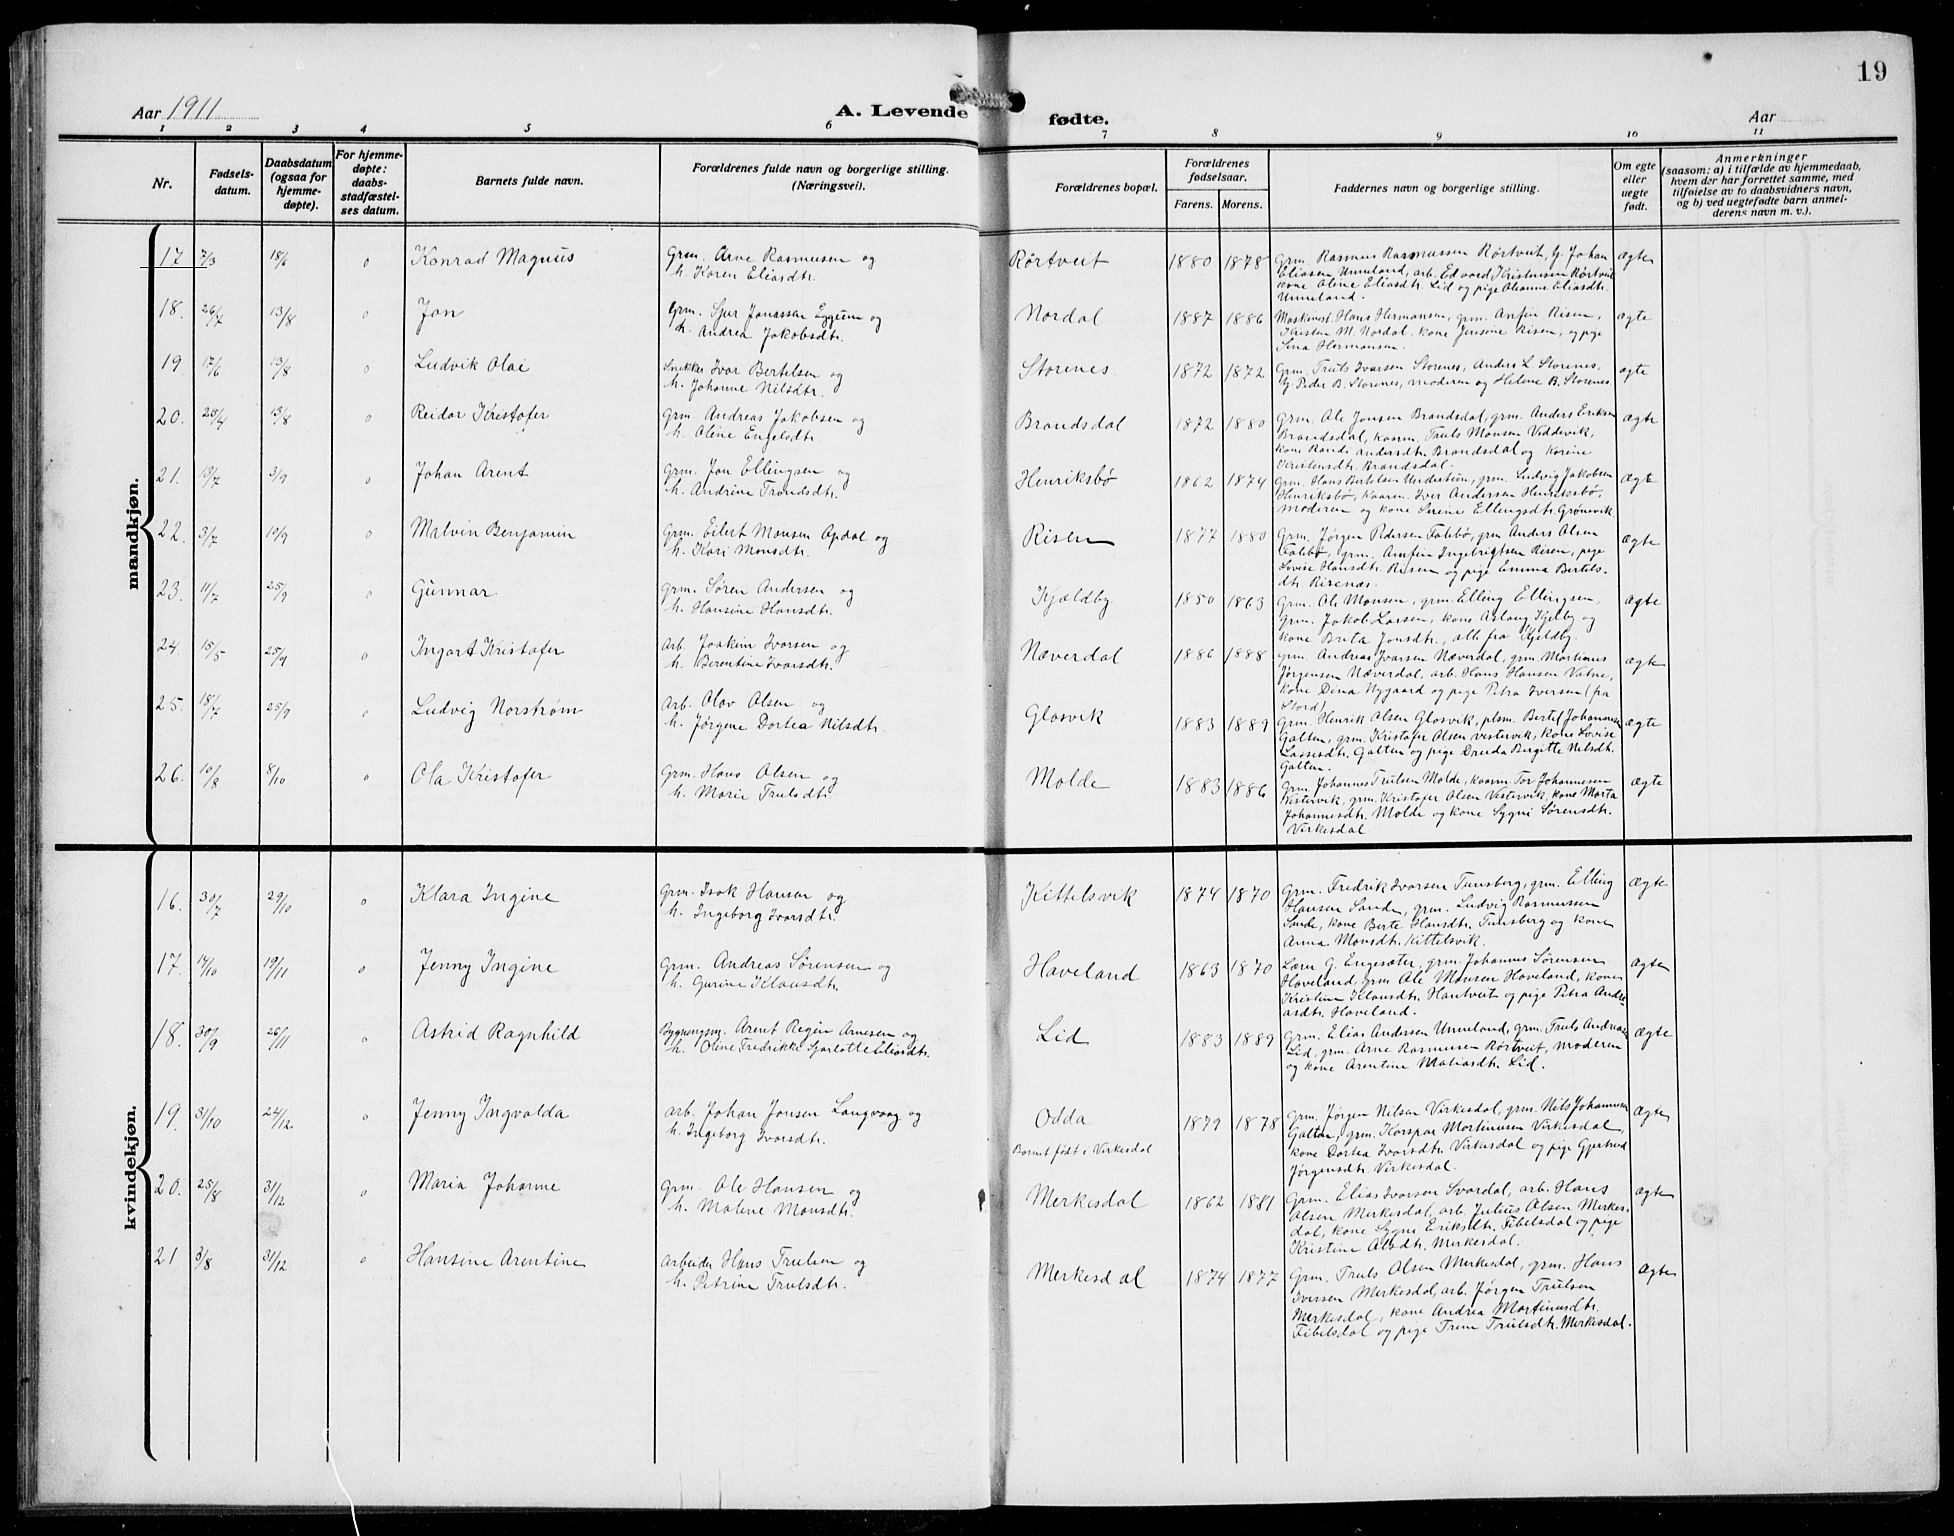 19
Aar 1911
A. Levende
fødte.
Aar
1 2 3 4 5 6 7 8 9 10 11
Nr.
Fødsels-
datum.
Daabsdatum
(ogsaa for
hjemme-
døpte).
For hjemme-
døpte:
daabs-
stadfæstel-
ses datum.
Barnets fulde navn.
Forældrenes fulde navn og borgerlige stilling.
(Næringsvei).
Forældrenes bopæl.
Forældrenes
fødselsaar.
Farens. Morens.
Faddernes navn og borgerlige stilling.
Om egte
eller
uegte
født.
Anmerkninger
(saasom: a) i tilfælde av hjemmedaab,
hvem der har forrettet samme, med
tilføielse av to daabsvidners navn,
og b) ved uegtefødte barn anmel-
derens navn m. v.).
mandkjøn.
17 7/3 18/6 0 Konrad Magnus
Grm. Arne Rasmussen og
h. Karen Eliasdtr.
Rørtveit 1880 1878
Grm. Rasmus Rasmussen Rørtveit, g. Johan
Eliasen Unneland, arb. Edvard Kristensen Rørtveit
kone Oline Eliasdtr. Lid og pige Oleanne Eliasdtr.
Unneland.
ægte
18. 26/7 13/8 0 Jon
Grm. Sjur Jonassen Eggum og
h. Andrea Jakobsdtr.
Nordal 1887 1886
Maskinist. Hans Hermansen, grm. Anfin Risen,
Kristen M. Nordal, kone Jensine Risen, og pige
Sina Hermansen.
ægte
19. 17/6 13/8 0 Ludvik Olai
Snikker Ivar Bertelsen og
h. Johanne Nilsdtr.
Storenes 1872 1872
Grm. Truls Ivarsen Storenes, Anders L. Storenes,
g. Peder B. Storenes, moderen og Helene B. Storenes.
ægte
20. 25/4 13/8 0 Reidar Kristofer
Grm. Andreas Jakobsen og
h. Oline Engelsdtr.
Brandsdal 1872 1880
Grm. Ole Jonsen Brandsdal, grm. Anders Eriksen
Brandsdal, kaarm. Truls Monsen Viddevik,
kone Randi Andersdtr. Brandsdal og Korine
Kristensdtr. Brandsdal.
ægte
21. 13/7 3/9 0 Johan Arent
Grm. Jon Ellingsen og
h. Andrine Trondsdtr.
Henriksbø 1862 1874
Grm. Hans Bertelsen Undertun, grm. Ludvig Jakobsen
Henriksbø, kaarm. Iver Andersen Henriksbø,
moderen og kone Serine Ellingsdtr. Grønevik.
ægte
22. 3/7 10/9 0 Malvin Benjamin
Grm. Eilert Monsen Opdal og
h. Kari Monsdtr.
Risen 1877 1880
Grm. Jørgen Pedersen Falebø, grm Anders Olsen
Falebø, grm. Amfin Ingebrigtsen Risen, pige
Lovise Hansdtr. Risen og pige Emma Bertels-
dtr. Risenæs.
ægte
23. 11/7 25/9 0 Gunnar
Grm. Søren Andersen og
h. Hansine Hansdtr.
Kjældby 1850 1863
Grm. Ole Monsen, grm. Elling Ellingsen,
Grm. Jakob Larsen, kone Aslaug Kjelby og
kone Brita Jonsdtr., alle fra Kjeldby.
ægte
24. 15/5 25/9 0 Ingart Kristofer
Arb. Joakim Ivarsen og
h. Berentine Ivarsdtr.
Næverdal 1886 1888
Grm. Andreas Ivarsen Næverdal, grm. Martinus
Jørgensen Næverdal, arb. Hans Hansen Vatne,
kone Dina Nygaard og pige Petra Iversen (fra
Stord)
ægte
25. 18/7 25/9 0 Ludvig Norstrøm
Arb. Olav Olsen og
h. Jørgene Dortea Nilsdtr.
Glosvik 1883 1889
Grm. Henrik Olsen Glosvik, plsm. Bertel Johannesen
Galten, grm. Kristofer Olsen Vestervik, kone Lovise
Lassesdtr. Galten og pige Dreda Birgitte Nilsdtr.
Galten.
ægte
26. 10/8 8/10 0 Ola Kristofer
Grm. Hans Olsen og
h. Marie Trulsdtr.
Molde 1883 1886
Grm. Johannes Trulsen Molde, kaarm. Tor Johannesen
Vestervik, grm. Kristofer Olsen Vestervik, kone Marta
Johannesdtr. Molde og kone Sygni Sørensdtr.
Virkesdal
ægte
kvindekjøn.
16. 30/7 29/10 0 Klara Ingine
Grm. Isak Hansen og
h. Ingeborg Ivarsdtr.
Kittelsvik 1874 1870
Grm. Fredrik Ivarsen Tunsberg, grm. Elling
Hansen Sande, grm. Ludvig Rasmussen
Sande, kone Berte Hansdtr. Tunsberg og kone
Anna Monsdtr. Kittelsvik.
ægte
17. 14/10 19/11 0 Jenny Ingine
Grm. Andreas Sørensen og
h. Gurine Klausdtr.
Haveland 1863 1870
Lærer G. Engesæter, grm. Johannes Sørensen
Haveland, grm Ole Monsen Haveland, kone
Kristine Klausdtr. Hantveit og pige Petra Andre-
asdtr. Haveland.
ægte
18. 30/9 26/11 0 Astrid Ragnhild
Bygningsm. Arent Regin Arnesen og
h. Oline Fredrikke Sjarlotte Eliasdtr.
Lid 1883 1889
Grm. Elias Andersen Unneland, grm. Truls Andreasen
Lid, grm. Arne Rasmussen Rørtveit, moderen
og kone Arentine Matiasdtr. Lid.
ægte
19. 31/10 24/12 0 Jenny Ingvalda
arb. Johan Jonsen Langvaag og
h. Ingeborg Ivarsdtr.
Odda
Barnet født i Virkesdal
1879 1878
Grm. Jørgen Nilsen Virkesdal, grm. Nils Johannesen
Galten, grm. Kaspar Martinusen Virkesdal,
kone Dortea Ivarsdtr. Virkesdal og pige Gjertrud
Jørgensdtr. Virkesdal.
ægte
20. 25/8 31/12 0 Maria Johanne
Grm. Ole Hansen og
h. Malene Monsdtr.
Merkesdal 1862 1881
Grm. Elias Ivarsen Svardal, arb. Hans
Olsen Merkesdal, arb. Julius Olsen Merkes-
dal, kone Sygni Eriksdtr. Fibelsdal og pige
Kristine Olsdtr. Merkesdal.
ægte
21 3/8 31/12 0 Hansine Arentine
Arbeider Hans Trulsen og
h. Petrine Trulsdtr.
Merkesdal 1874 1877
Grm. Truls Olsen Merkesdal, grm. Hans
Iversen Merkesdal, arb. Jørgen Trulsen
Merkesdal, kone Andrea Martinusdtr.
Fibelsdal og pige Trine Trulsdtr. Merkesdal.
ægte